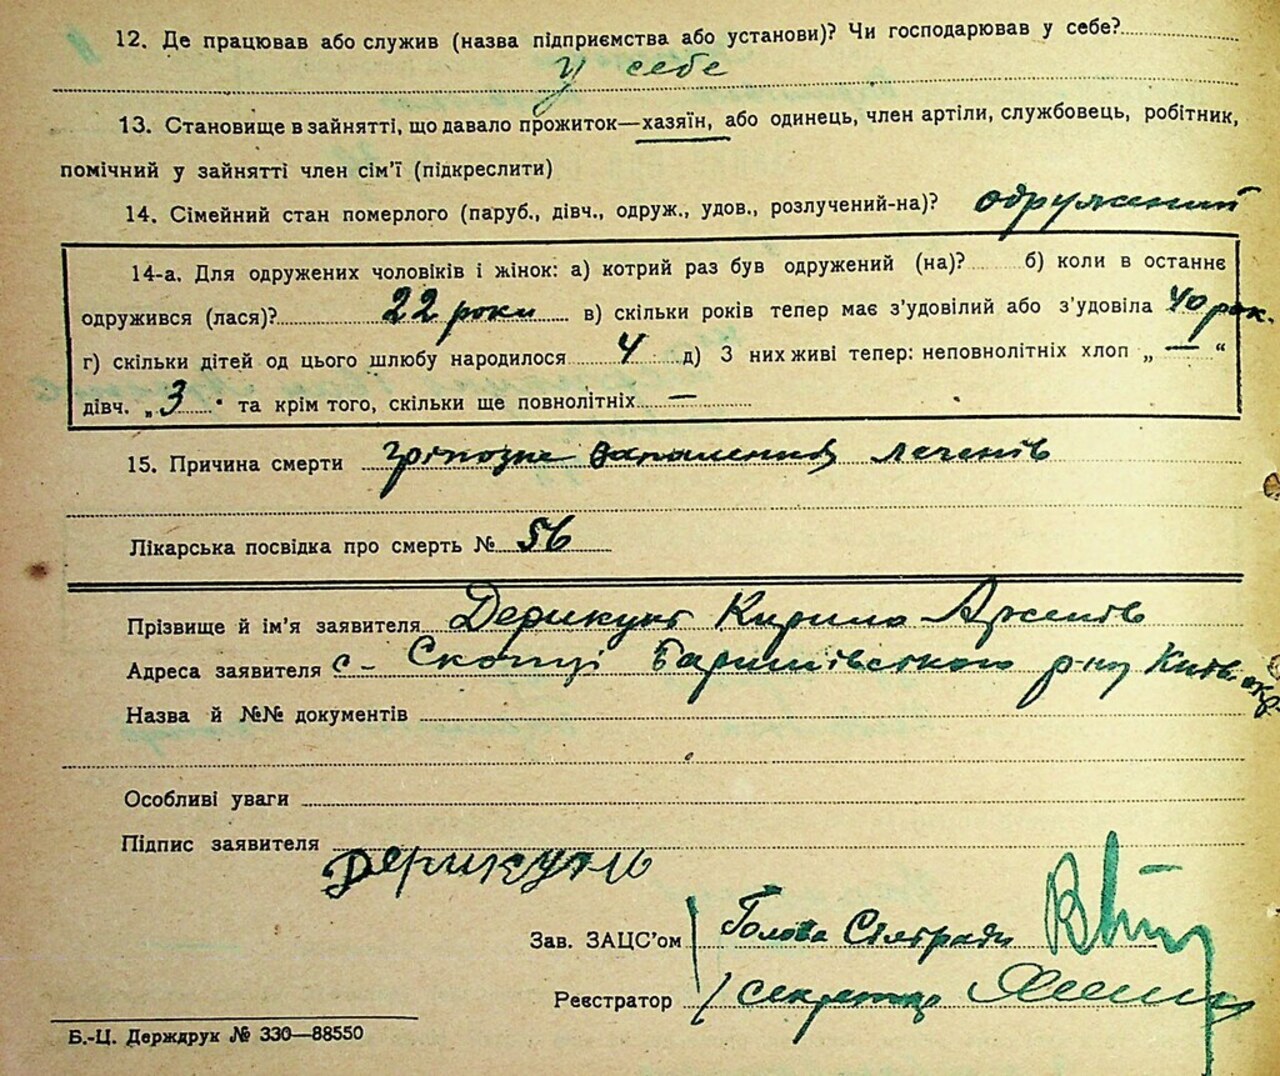 12. Де працював або служив (назва підприємства або установи)? Чи господарював у себе?
у себе
13. Становище в зайнятті, що давало прожиток—хазяїн, або одинець, член артіли, службовець, робітник,
помічний у зайнятті член сім'ї (підкреслити)
14. Сімейний стан померлого (паруб., дівч., одруж., удов., розлучений-на)? одружений
14-а. Для одружених чоловіків і жінок: а) котрий раз був одружений (на)? б) коли в останнє
одружився (лася)? 22 роки в) скільки років тепер має з'удовілий або з'удовіла 40 рок.
г) скільки дітей од цього шлюбу народилося 4 д) З них живі тепер: неповнолітніх хлоп „ — “
дівч. „ 3 " та крім того, скільки ще повнолітніх —
15. Причина смерти грипозне запалення легенів
Лікарська посвідка про смерть № 56
Прізвище й ім'я заявителя Дерикут Кирило Арсенів
Адреса заявителя с- Скопці Баришівського р-ну Київ. окр.
Назва й №№ документів
Особливі уваги
Підпис заявителя Дерикуть
Зав. ЗАЦС'ом Голова Сільради
Реєстратор Секретар
Б.-Ц. Держдрук № 330—88550